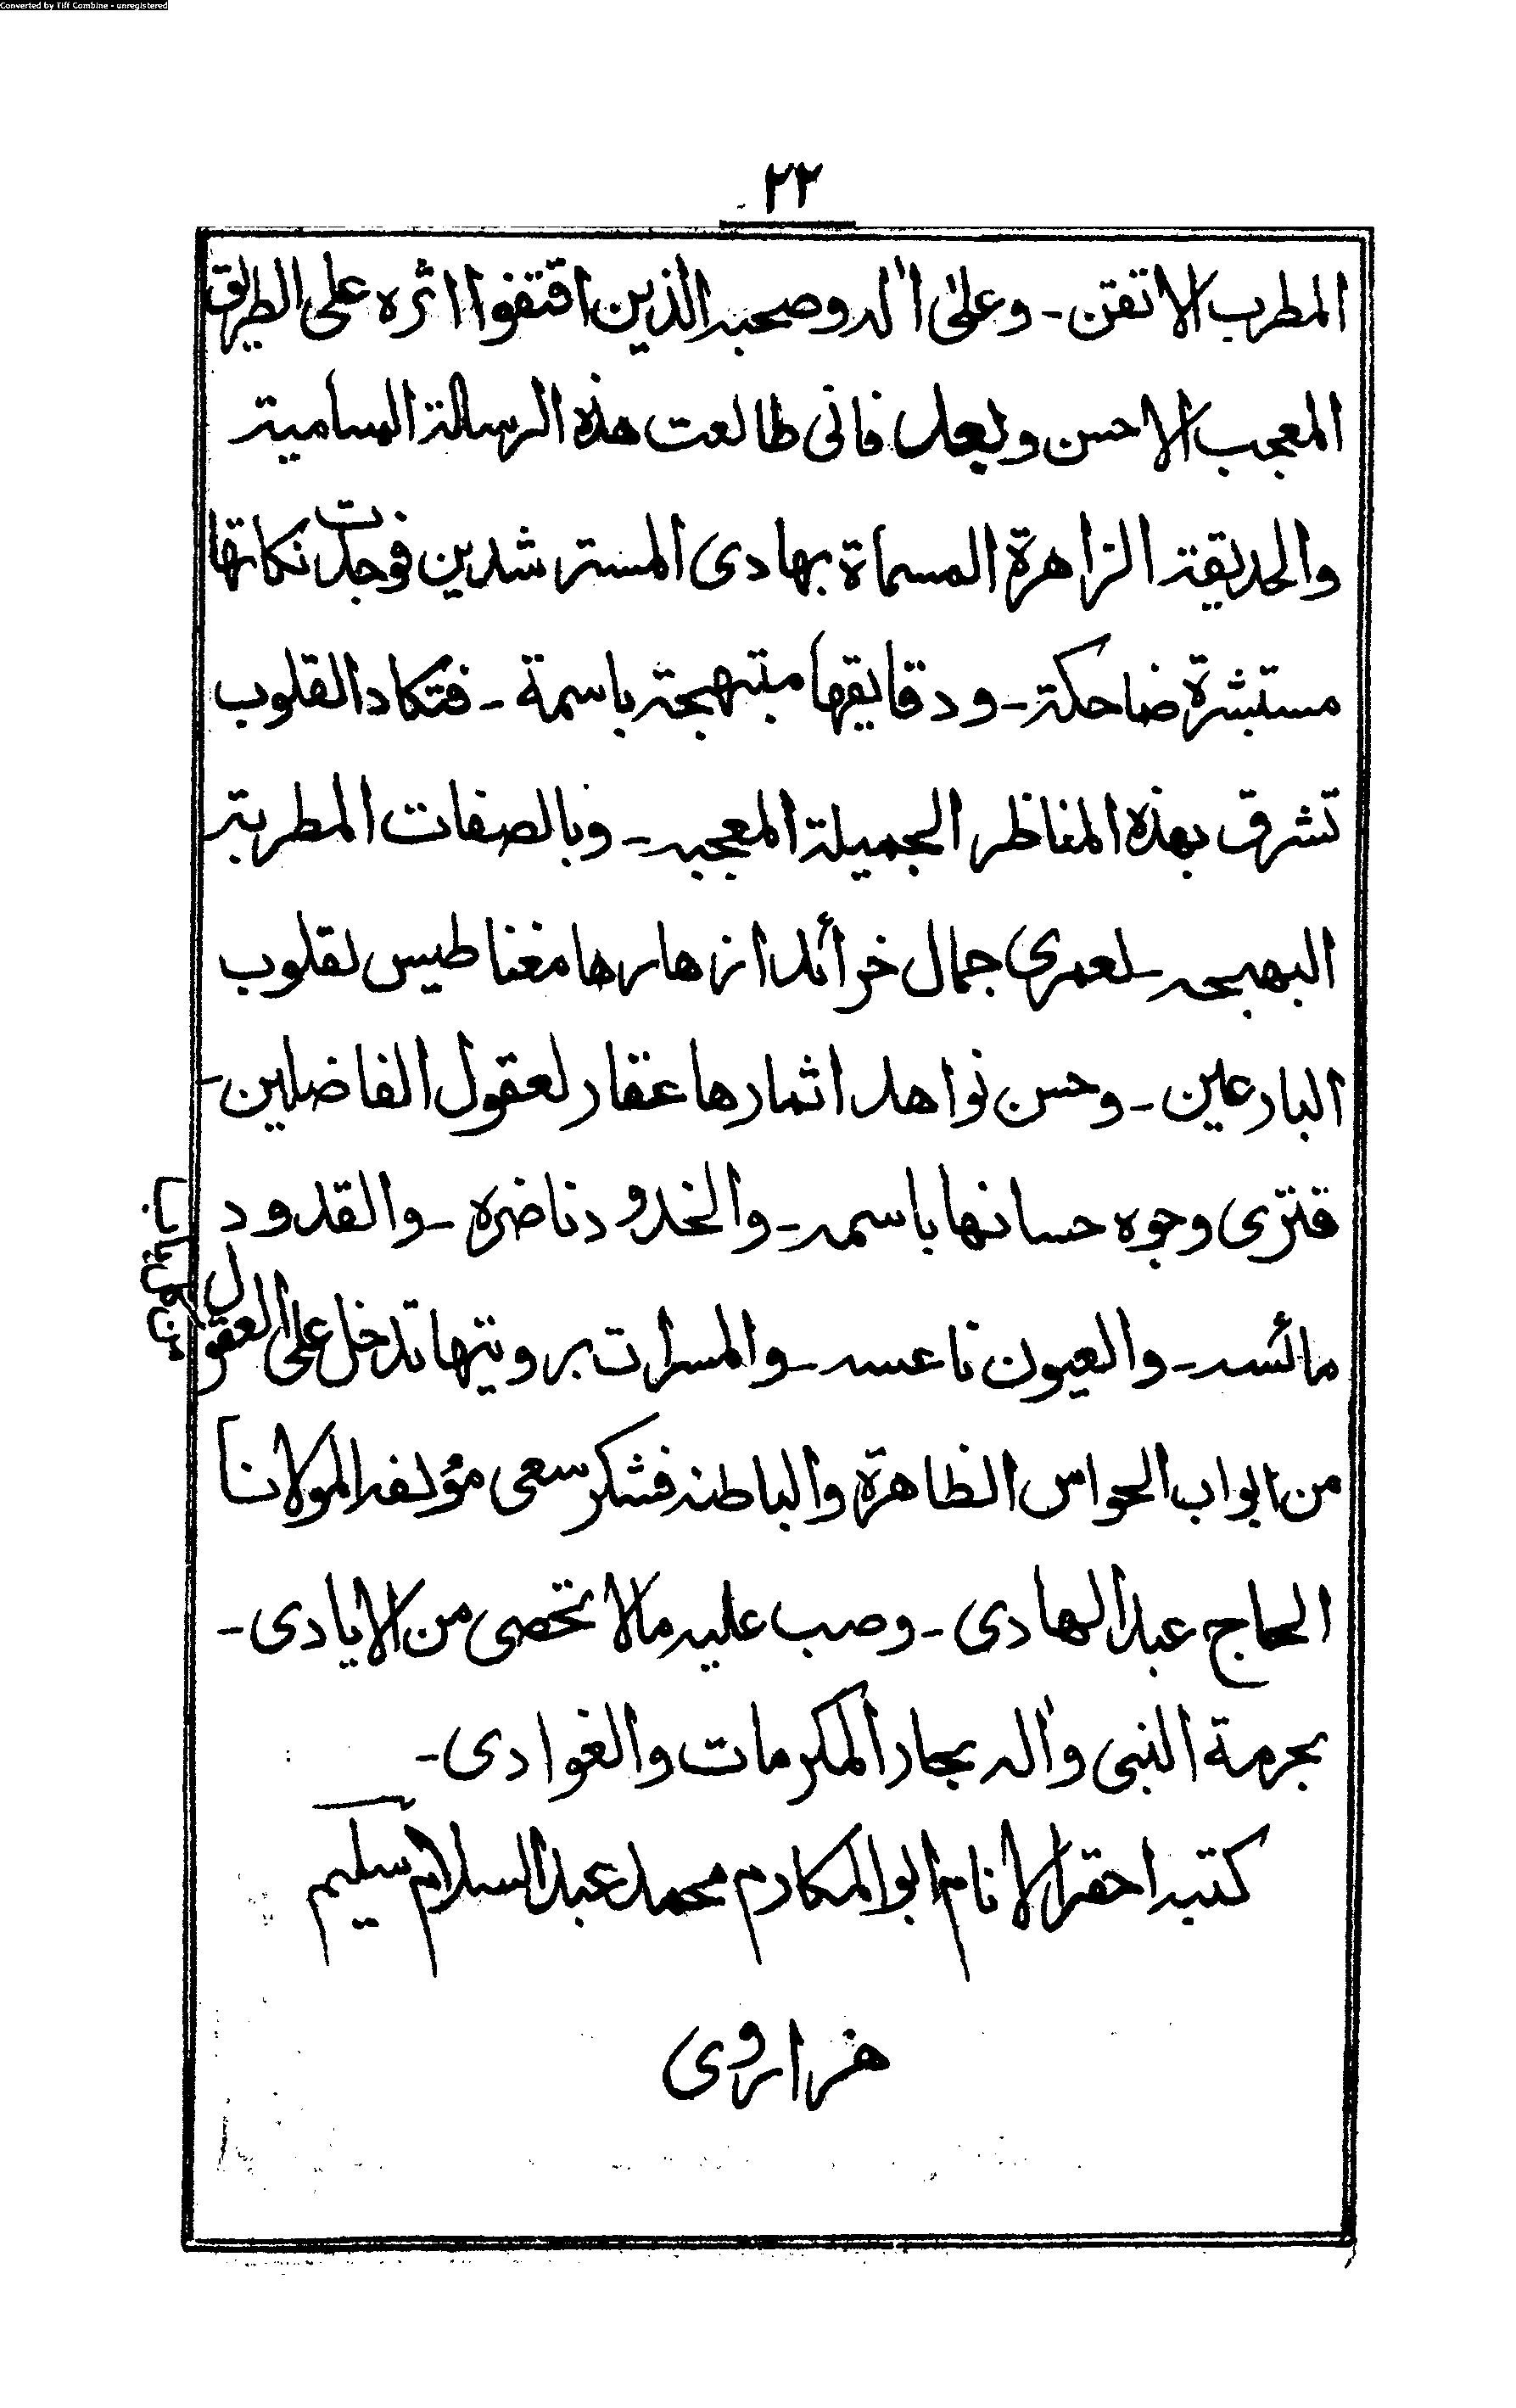 Converted by Tiff Combine - unregistered
٢٢
المطرب الاتقن - وعلى اٰله وصحبه الذين اقتفوا اثره على الطريق
المعجب الاحسن وبعد فانى طالعت هذه الرسالة السامية
والحديقة الزاهرة المسماة بهادى المسترشدين فوجدت نكاتها
مستبشرة ضاحكة - ودقايقها مبتهجة باسمة - فتكاد القلوب
تشرق بهذه المناظر الجميلة المعجبه - وبالصفات المطربة
البهيجه - لعمري جمال خرائد ازهارها مغناطيس لقلوب
البارعين - وحسن نواهد اثمارها عقار لعقول الفاضلين -
فترى وجوه حسانها باسمه - والخدود ناضره - والقدود
مائسه - والعيون ناعسه - والمسرات برويتها تدخل على العقول
من ابواب الحواس الظاهرة والباطنه فشكر سعى مؤلفه المولانا
الحاج عبد الهادى - وصب عليه مالا تحصى من الايادى -
بحرمة النبى واٰله بحار المكرمات والغوادى -
كتبه احقر الانام ابو المكارم محمد عبد السلام سليم
هزاروى